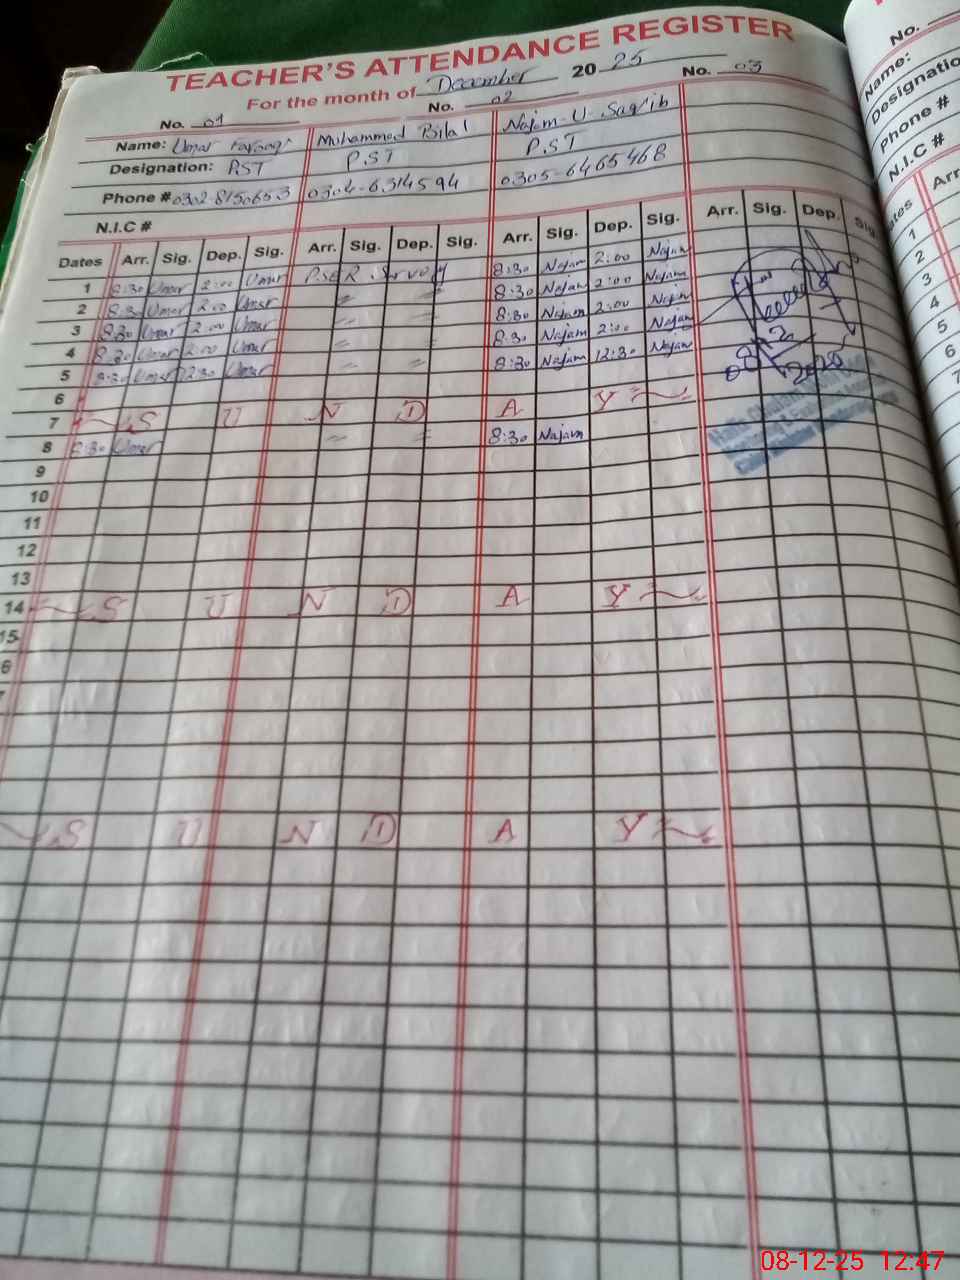 TEACHER'S ATTENDANCE REGISTER
For the month of December 2025
No. 01 No. 02 No. 03
Name: Umar Farooq Muhammed Bilal Najam-U-Saqib
Designation: PST P.ST P.ST
Phone # 0302-8150653 0304-6314594 0305-6465468
N.I.C #
Dates Arr. Sig. Dep. Sig. Arr. Sig. Dep. Sig. Arr. Sig. Dep. Sig. Arr. Sig. Dep. Sig.
1 8:30 Umar 2:00 Umar PSER Survey 8:30 Najam 2:00 Najam
2 8:30 Umar 2:00 Umar " " 8:30 Najam 2:00 Najam
3 8:30 Umar 2:00 Umar " " 8:30 Najam 2:00 Najam
4 8:30 Umar 2:00 Umar " " 8:30 Najam 2:00 Najam
5 8:30 Umar 12:30 Umar " " 8:30 Najam 12:30 Najam
6
7 S U N D A Y
8 8:30 Umar " " 8:30 Najam
9
10
11
12
13
14 S U N D A Y
15
6
7
S U N D A Y
No.
Name:
Designatio
Phone #
N.I.C #
ates Arr
1
2
3
4
5
6
7
08-12-25 12:47